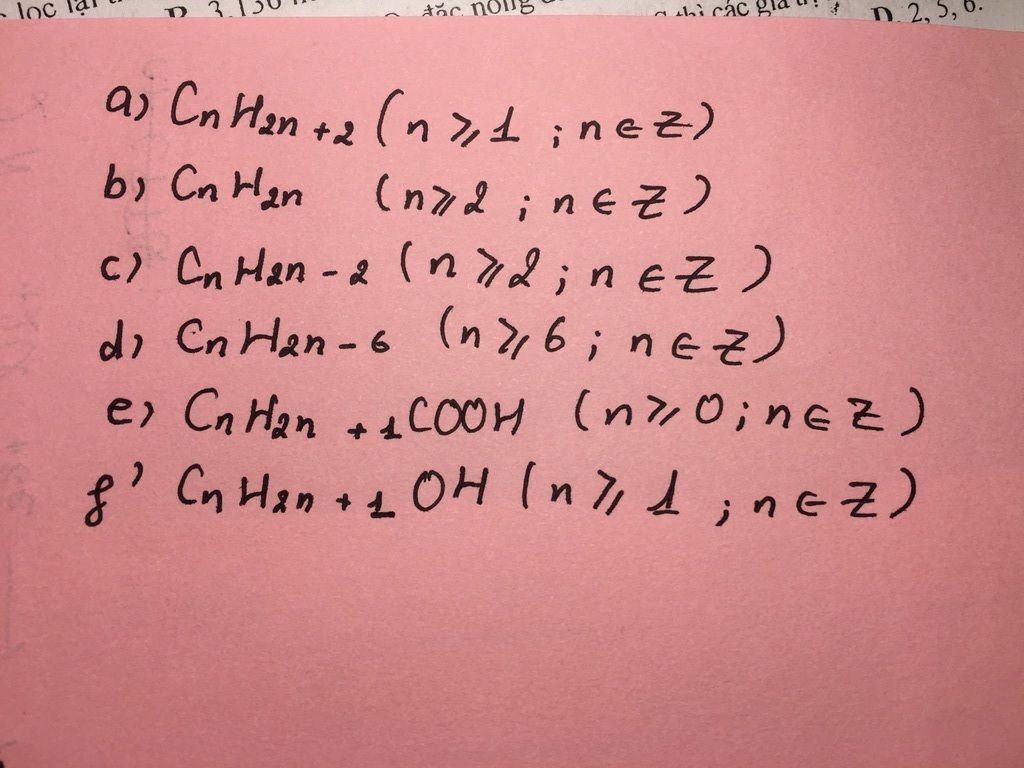 lọc lại
B. 3,136
đặc nóng
thì các giá
D. 2, 5, 6.
a) CnH2n+2 (n ⩾ 1 ; n ∈ Z)
b) CnH2n (n ⩾ 2 ; n ∈ Z)
c) CnH2n-2 (n ⩾ 2 ; n ∈ Z)
d) CnH2n-6 (n ⩾ 6 ; n ∈ Z)
e) CnH2n+1COOH (n ⩾ 0 ; n ∈ Z)
f) CnH2n+1OH (n ⩾ 1 ; n ∈ Z)